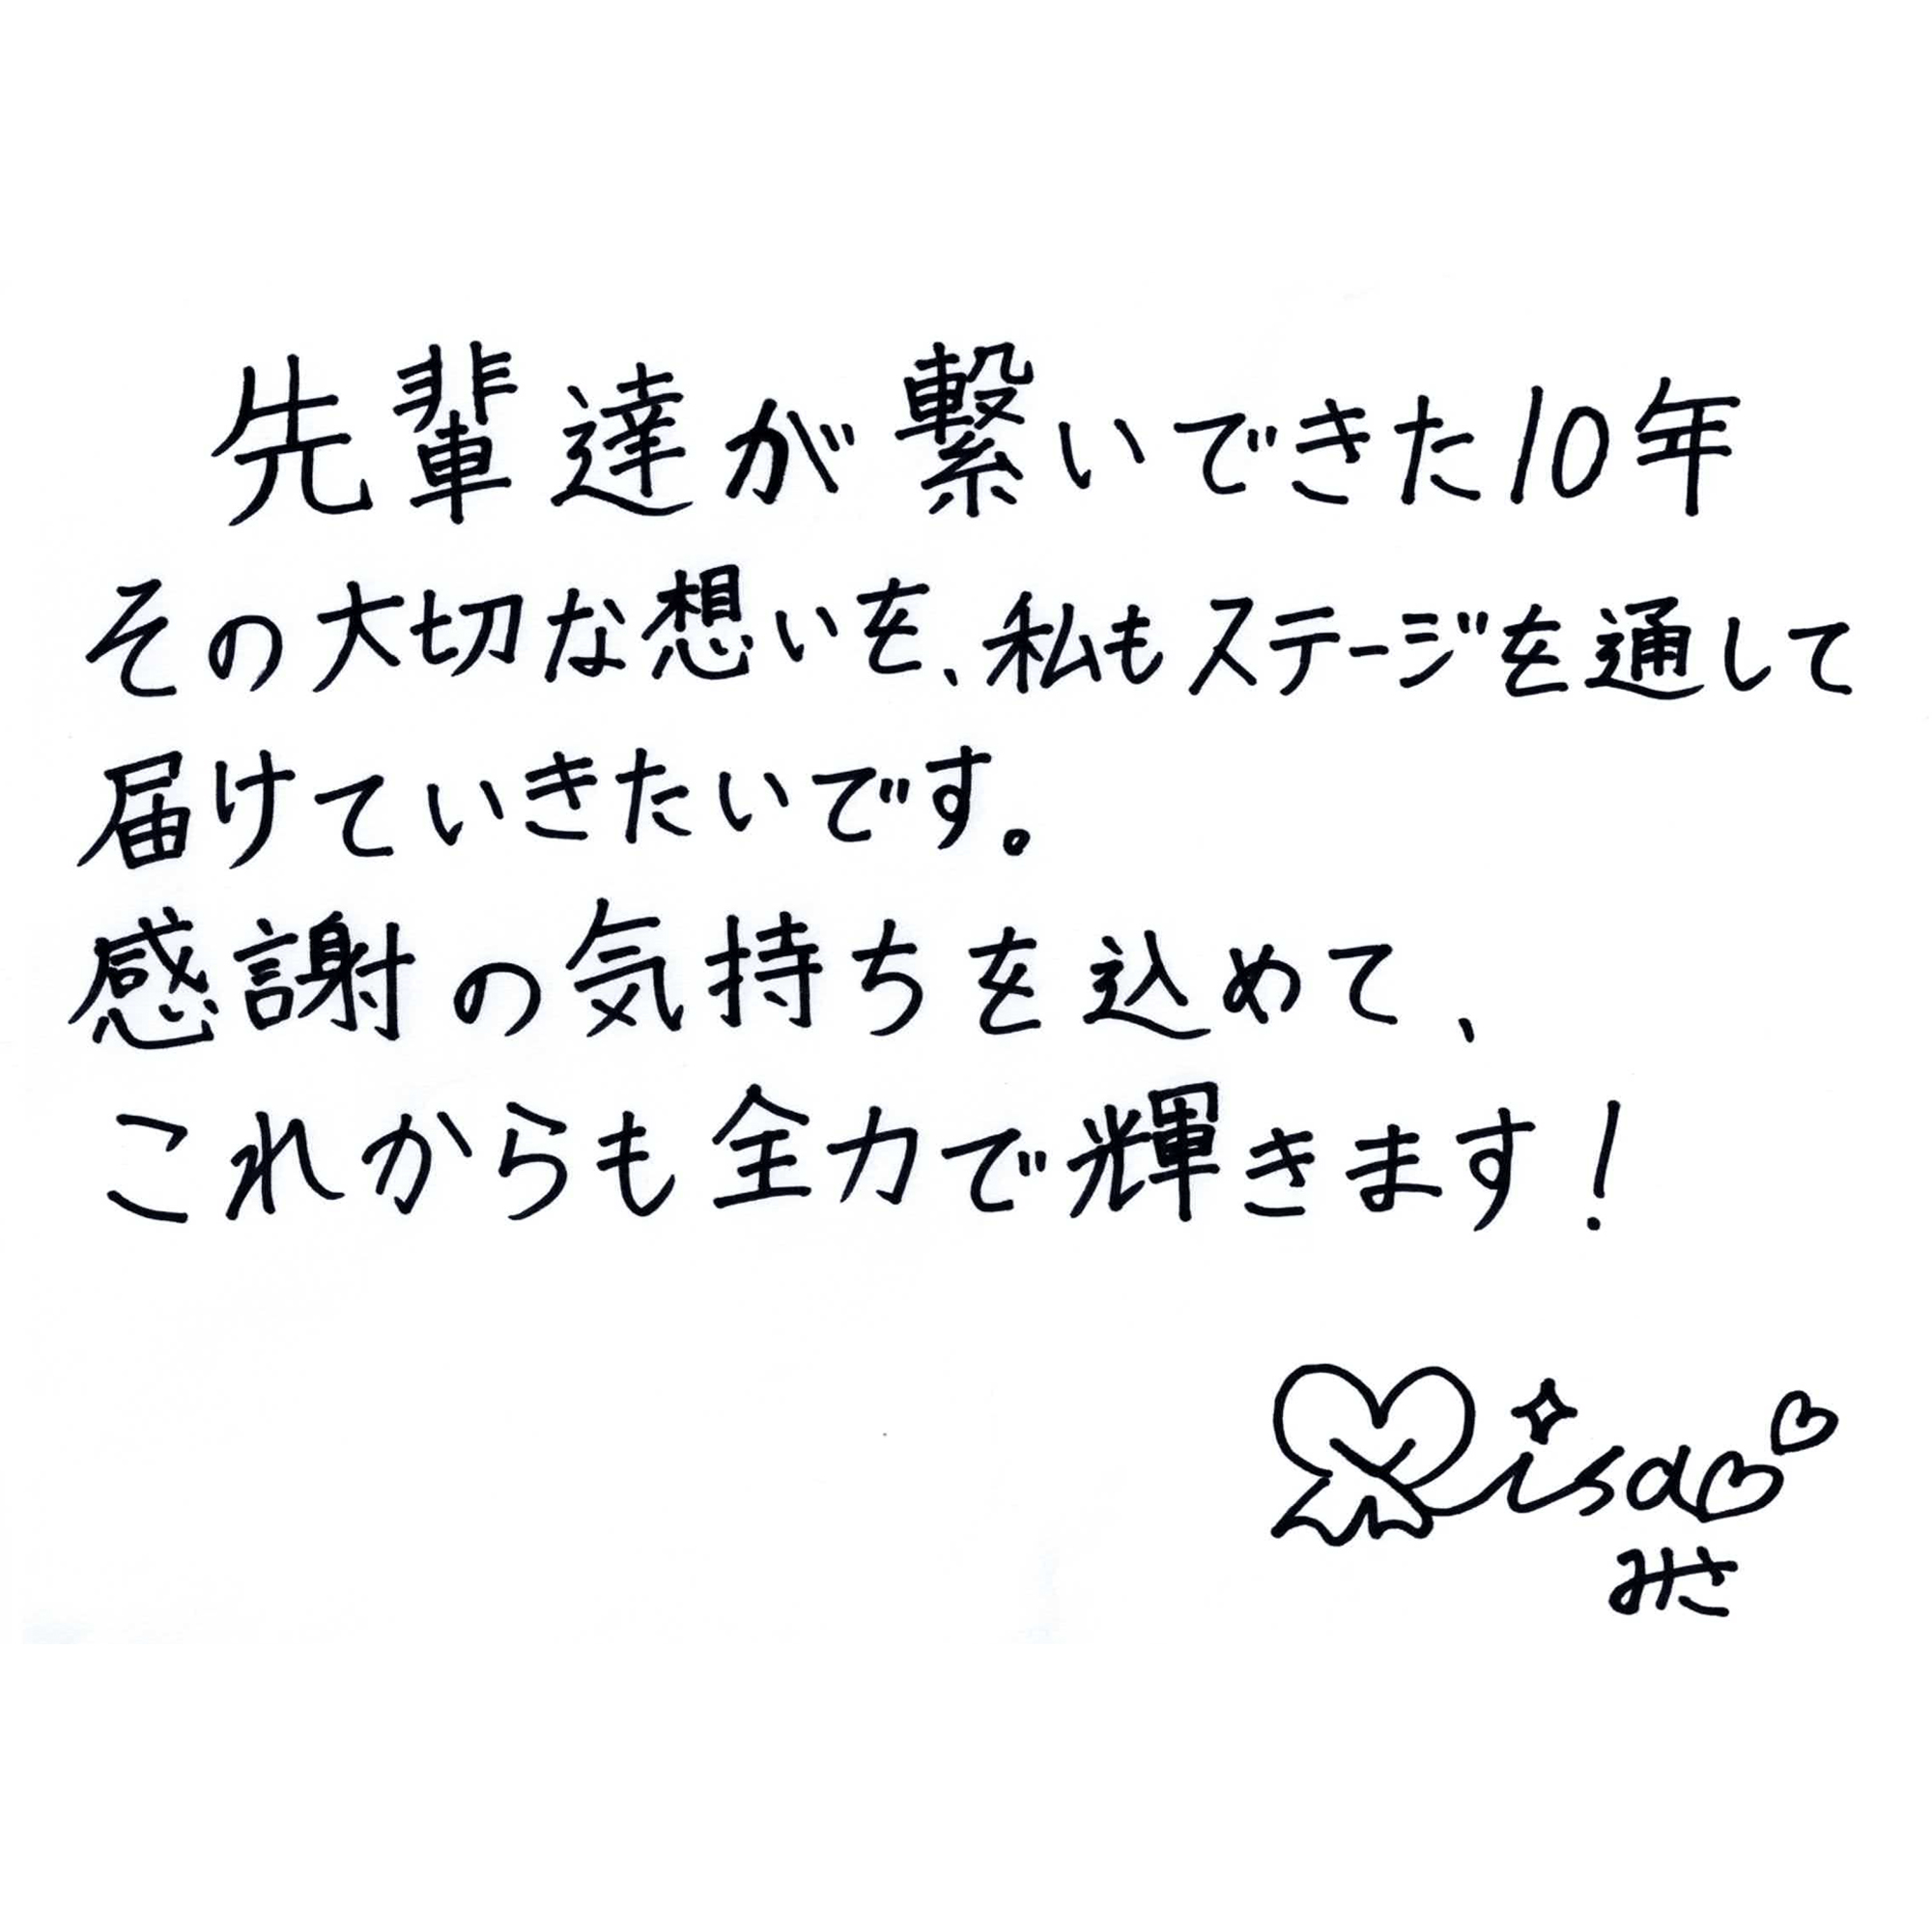 先輩達が繋いできた10年
その大切な想いを、私もステージを通して
届けていきたいです。
感謝の気持ちを込めて、
これからも全力で輝きます!
Misa
みさ